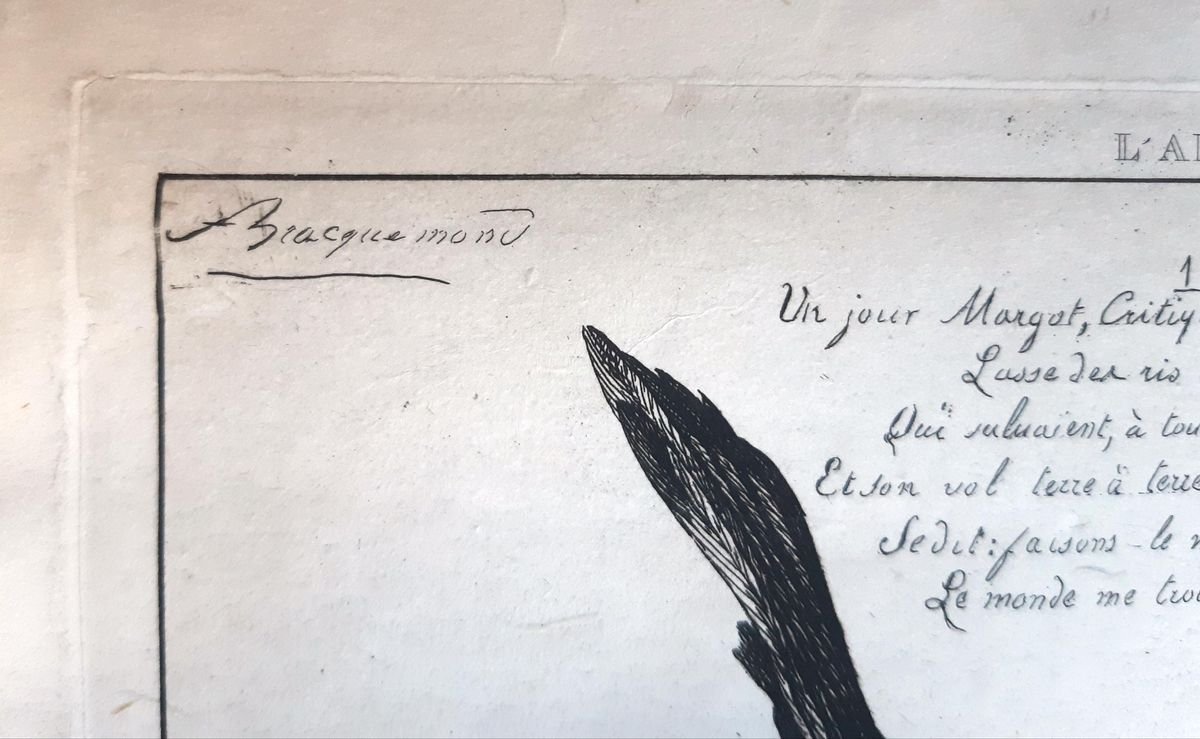 L'A
Bracquemond
1
Un jour Margot, Critiq
Lasse des ris
Qui saluaient, à tou
Et son vol terre à terre
Se dit: faisons-le
Le monde me trou